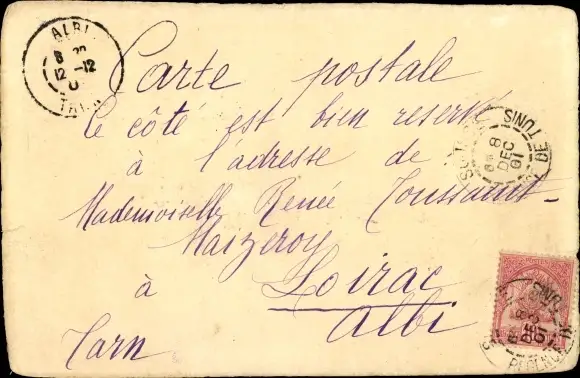 Carte postale
Ce côté est bien reservé
à l'adresse de
Mademoiselle Renée Toussaint-
Maizeroy
à Loirac
Albi
Tarn
ALBI
8
12 -12
TARN
TUNIS
8
DEC
01
TUNIS
8
DEC
01
REGENCE